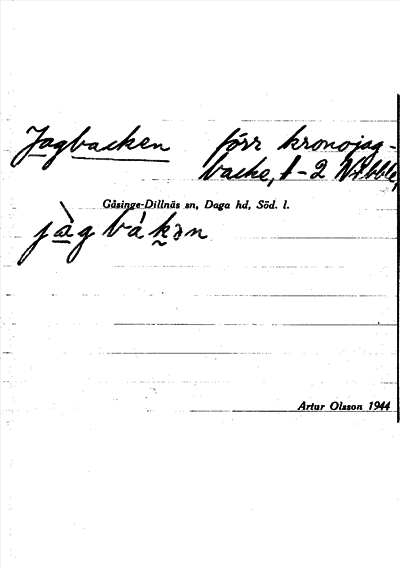 Jagbacken förr kronojag-
backe, 1-2 Nibble,
Gåsinge-Dillnäs sn, Daga hd, Söd. l.
jàg bákən
Artur Olsson 1944